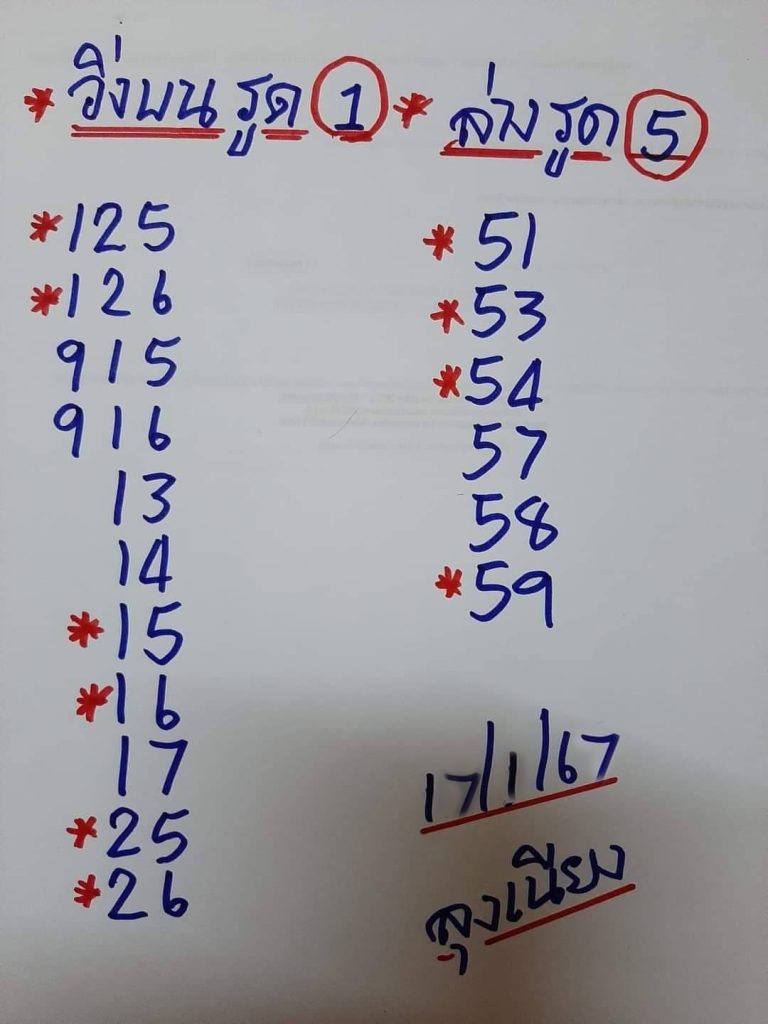 * วิ่งบน รูด 1
* 125
* 126
915
916
13
14
* 15
* 16
17
* 25
* 26
* ล่าง รูด 5
* 51
* 53
* 54
57
58
* 59
17/1/67
ลุงเนียง